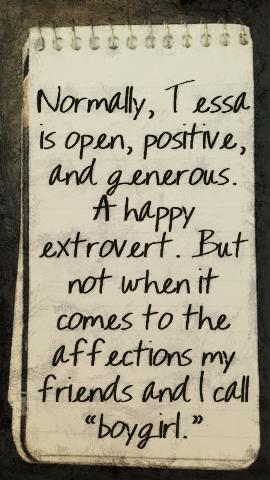 Normally, Tessa
is open, positive,
and generous.
A happy
extrovert. But
not when it
comes to the
affections my
friends and I call
“boygirl.”